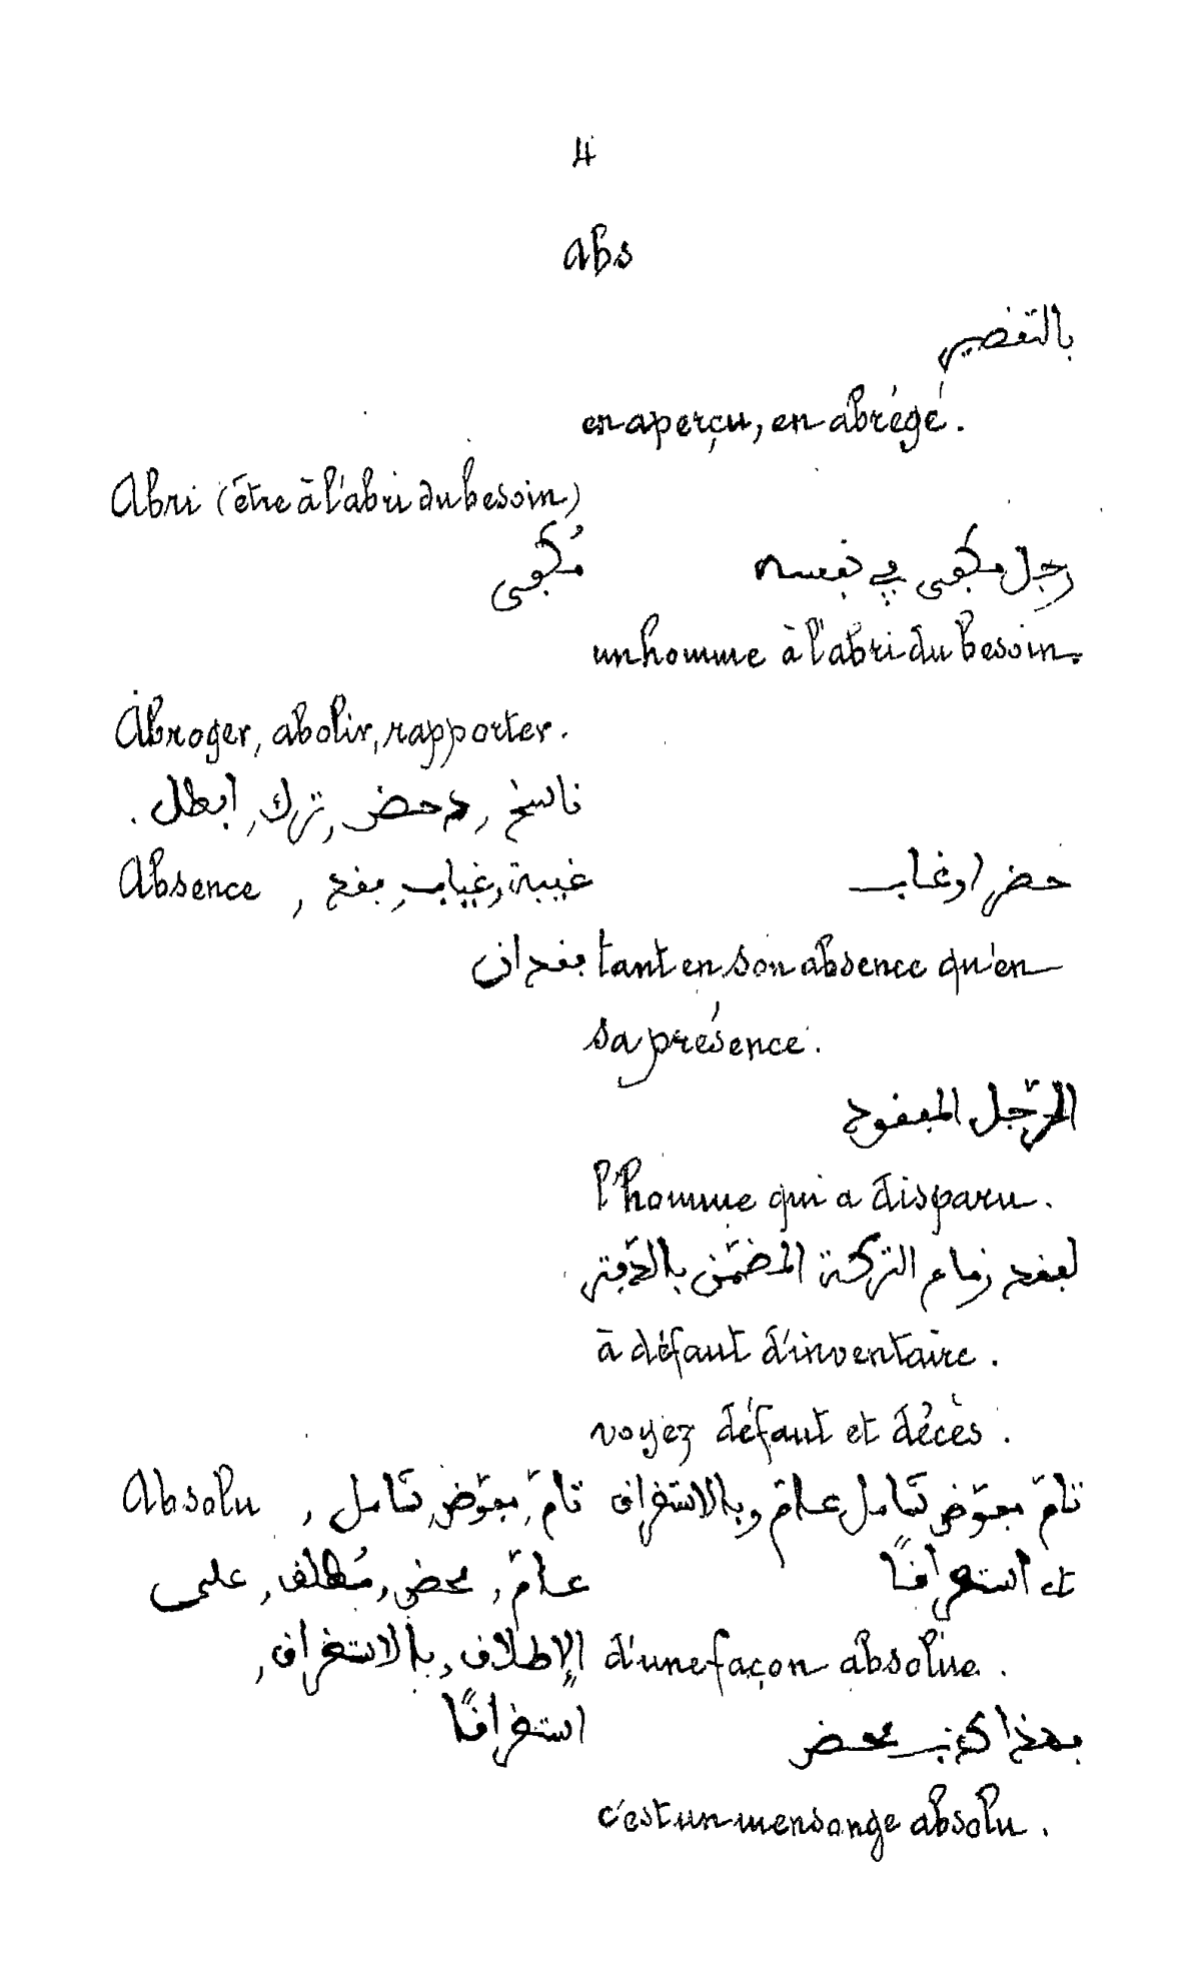 4
abs
بالتقصير
en aperçu, en abrégé.
Abri (être à l'abri du besoin)
مُكفى
رجل مكفى في نفسه
un homme à l'abri du besoin.
Abroger, abolir, rapporter.
ناسخ, دحض, ترك, ابطل.
Absence , غيبة, غياب, فقد
حضر او غاب
فقدان
tant en son absence qu'en
sa présence.
الرّجل المفقود
l'homme qui a disparu.
لفقد زمام التركة المضمّن بالدّفتر
à défaut d'inventaire.
voyez défaut et décès.
Absolu , تامّ, مفوّض, شامل
عامّ, محض, مُطلق, على
الإطلاق, بالاستغراق,
استغراقًا
تامّ مفوّض شامل عامّ وبالاستغراق
et استغراقًا
d'une façon absolue.
فهذا كذب محض
c'est un mensonge absolu.